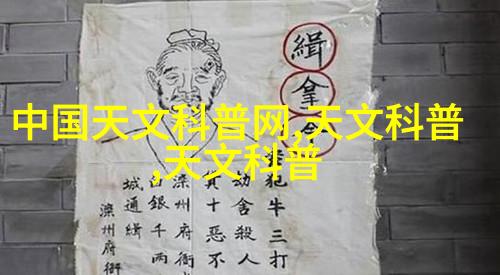 中国天文科普网,天文科普
,天文科普
緝拿令
犯牛三打
舍殺人
其十惡不
滦州府衙
白銀千两
城通緝
滦州府衙